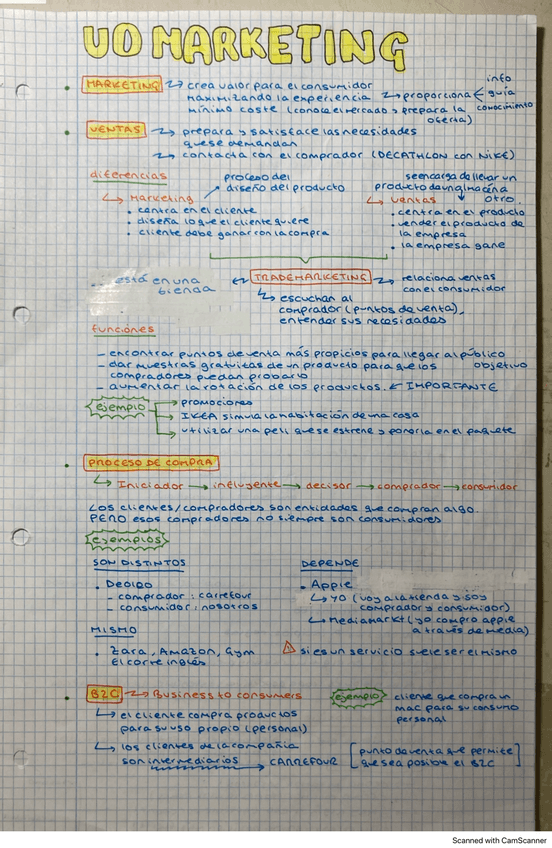 UO MARKETING
• MARKETING ↝ crea valor para el consumidor
maximizando la experiencia ↝ proporciona info
guía
conocimiento
mínimo coste (conoce el mercado y prepara la oferta)
• VENTAS ↝ prepara y satisface las necesidades
que se demandan
↝ contacta con el comprador (DECATHLON con NIKE)
diferencias
↳ Marketing ↗ proceso del
diseño del producto
• centra en el cliente
• diseña lo que el cliente quiere
• cliente debe ganar con la compra
se encarga de llevar un
producto de un almacén a
otro.
↳ ventas
• centra en el producto
• vender el producto de
la empresa
• la empresa gane
... está en una
tienda
↭ TRADEMARKETING ↝ relaciona ventas
con el consumidor
↳ escuchan al
comprador (puntos de venta),
entender sus necesidades
funciones
- encontrar puntos de venta más propicios para llegar al público
objetivo
- dar muestras gratuitas de un producto para que los
compradores puedan probarlo
- aumentar la rotación de los productos. ← IMPORTANTE
ejemplo → promociones
→ IKEA simula la habitación de una casa
→ utilizar una peli que se estrene y ponerla en el paquete
• PROCESO DE COMPRA
↳ Iniciador → influyente → decisor → comprador → consumidor
Los clientes/compradores son entidades que compran algo.
PERO esos compradores no siempre son consumidores
ejemplos
SON DISTINTOS
• Dedido
- comprador: carrefour
- consumidor: nosotros
MISMO
• Zara, Amazon, Gym
El corte inglés
DEPENDE
• Apple
↳ YO (voy a la tienda y soy
comprador y consumidor)
↳ mediamarkt (yo compro apple
a través de media)
⚠ si es un servicio suele ser el mismo
• B2C ↝ Business to consumers
↳ el cliente compra productos
para su uso propio (personal)
↳ los clientes de la compañía
son intermediarios → CARREFOUR [punto de venta que permite
que sea posible el B2C]
ejemplo cliente que compra un
mac para su consumo
personal
Scanned with CamScanner